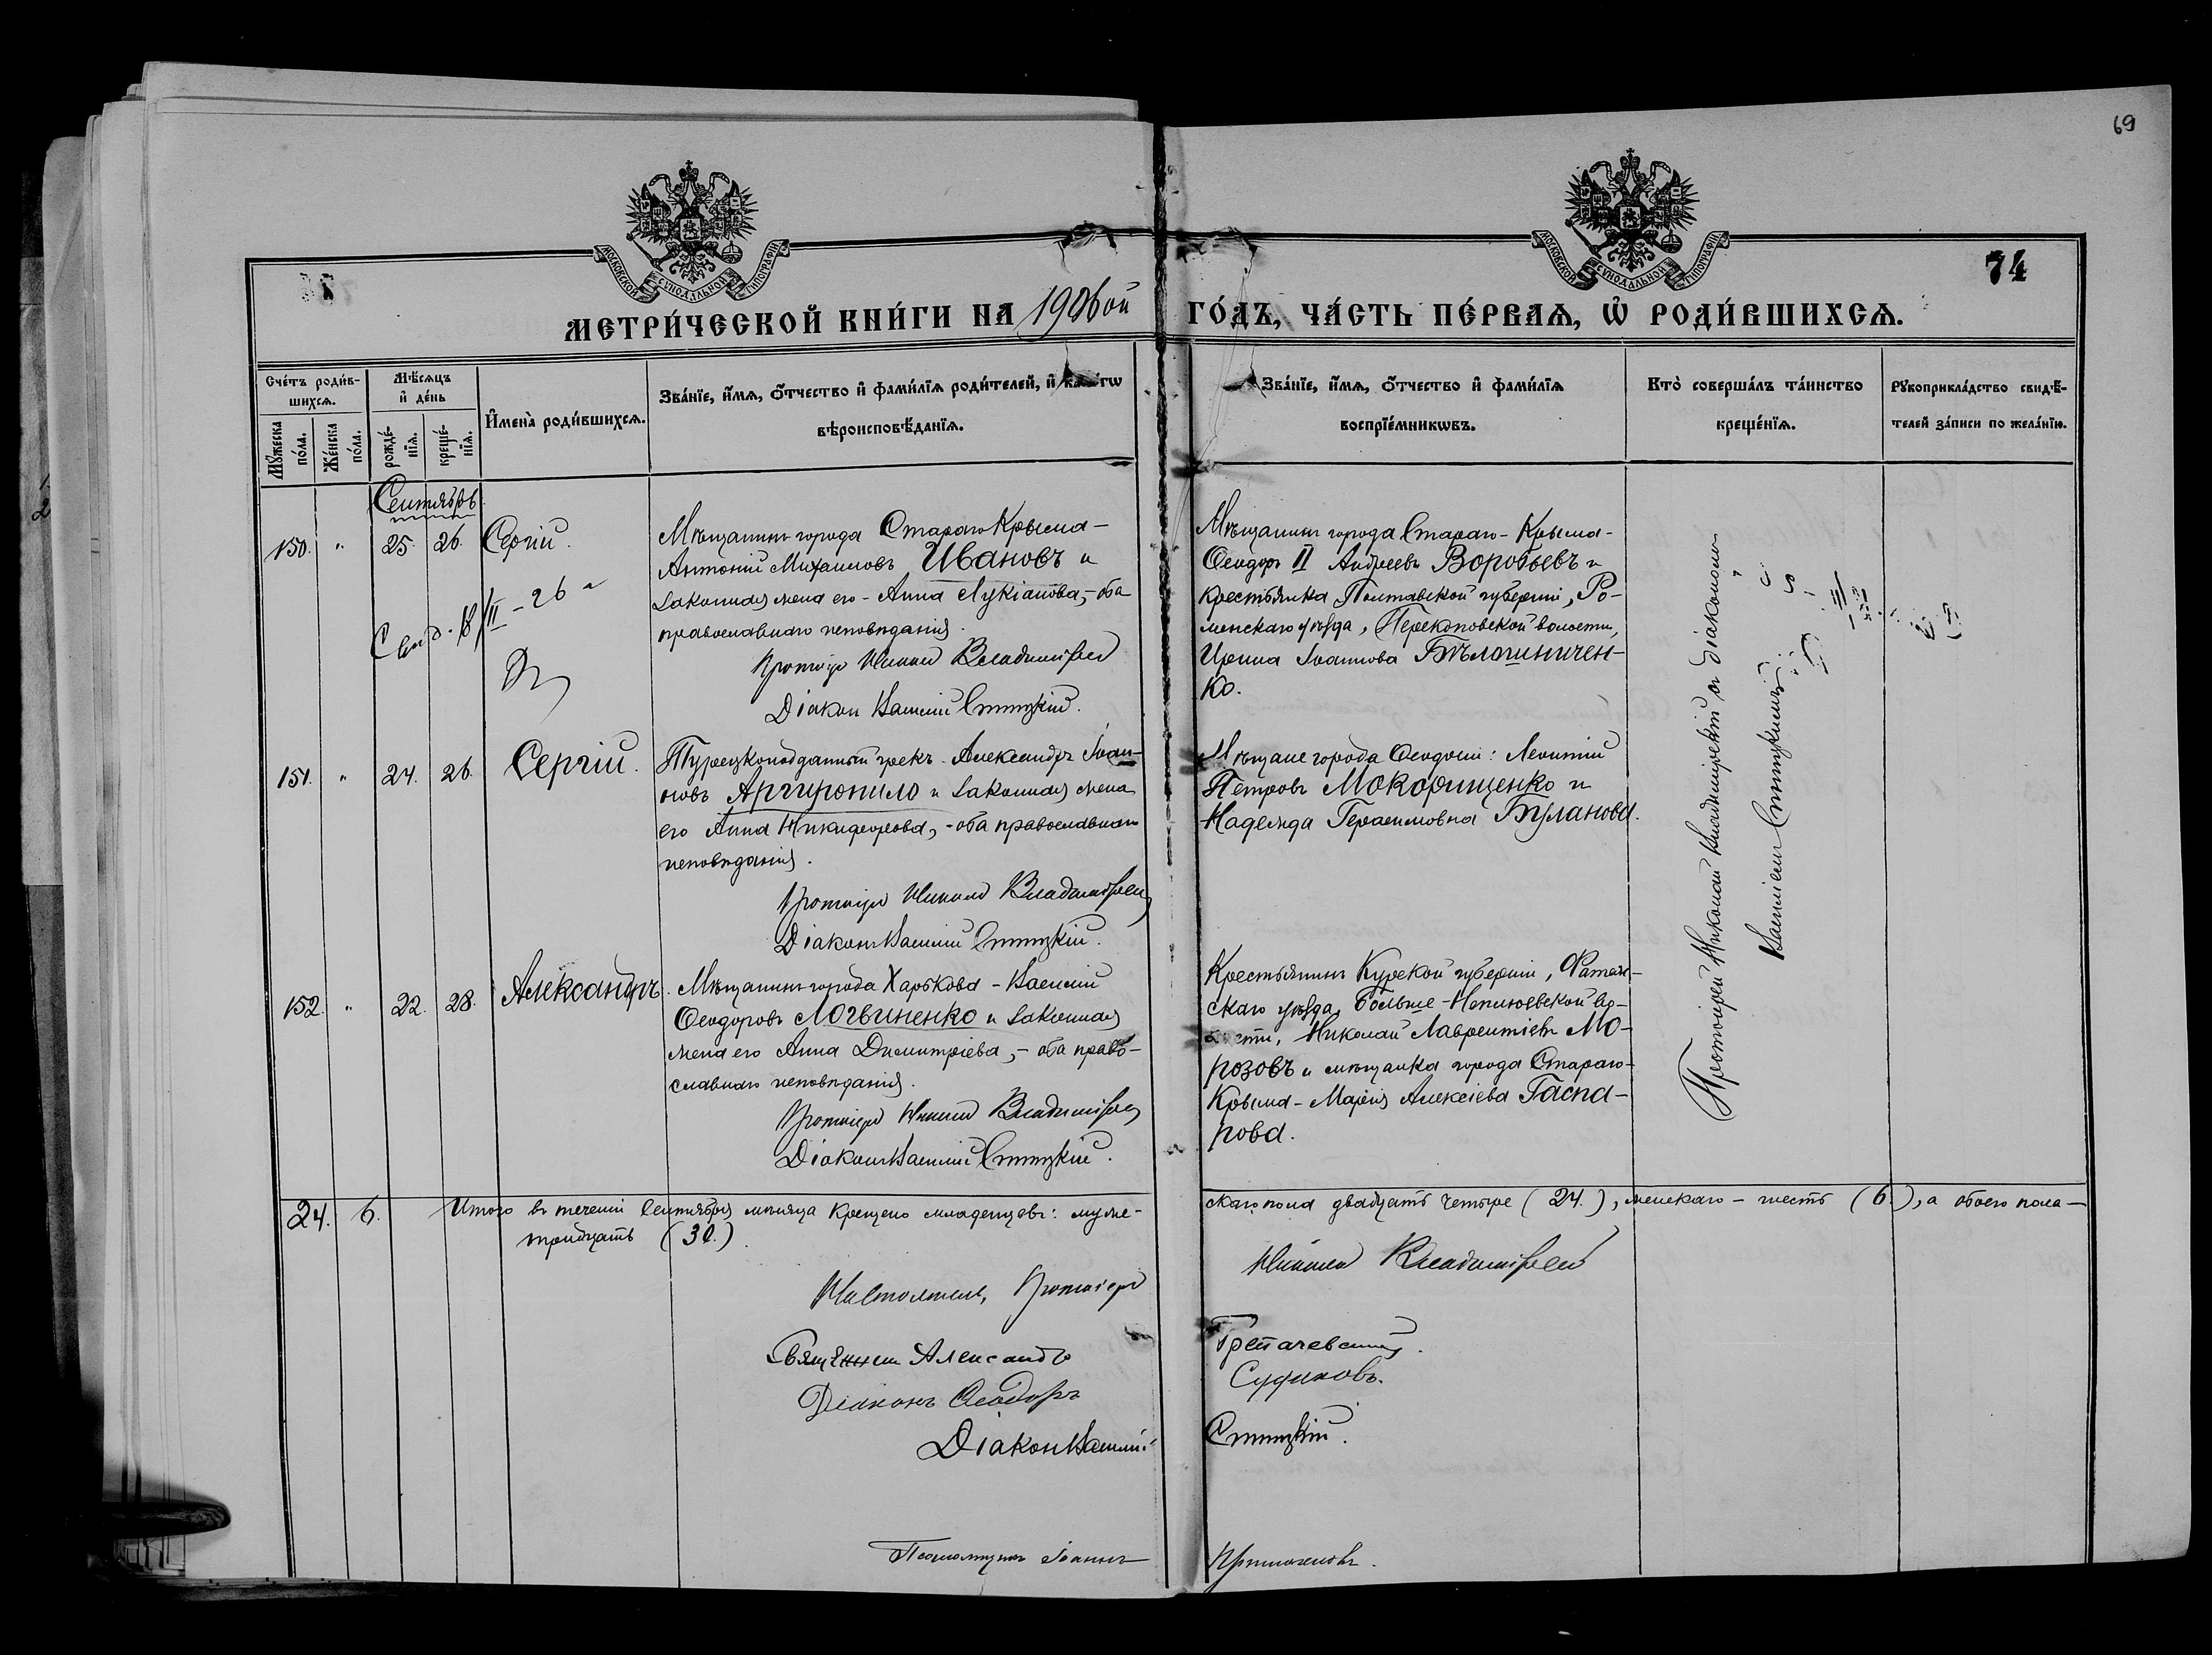 69
МОСКОВСКОЙ СѴНОДАЛЬНОЙ ТИПОГРАФІИ
МОСКОВСКОЙ СѴНОДАЛЬНОЙ ТИПОГРАФІИ
74
МЕТРИ́ЧЕСКОЙ КНИ́ГИ НА 1906ой ГО́ДЪ, ЧА́СТЬ ПЕ́РВАѦ, Ѽ РОДИ́ВШИХСѦ.
Счéтъ роди́в-
шихсѧ.
Мꙋ́жеска по́ла.
Же́нска по́ла.
Мѣ́сѧцъ
и҆ де́нь
рожде́-
нїѧ.
креще́-
нїѧ.
И҆мена̀ роди́вшихсѧ.
Зва́нїе, и҆́мѧ, ѻ҆́тчество и҆ фами́лїѧ роди́телей, и҆ како́гѡ
вѣроисповѣ́данїѧ.
Зва́нїе, и҆́мѧ, ѻ҆́тчество и҆ фами́лїѧ
воспрїе́мникѡвъ.
Кто̀ соверша́лъ та́инство
креще́нїѧ.
Рꙋкоприкла́дство свидѣ́-
телей за́писи по жела́нїю.
Сентябрь.
150. " 25. 26. Сергій.
Мѣщанинъ города Стараго Крыма-
Антоній Михаиловъ Ивановъ и
законная жена его - Анна Лукіанова, - оба
православнаго исповѣданія.
Протоіерей Николай Владимірскій
Діаконъ Василій Стицкій.
Мѣщанинъ города Стараго-Крыма-
Ѳеодоръ II Андреевъ Воробьевъ и
крестьянка Полтавской губерніи, Ро-
менскаго уѣзда, Перекоповской волости,
Ирина Іоаннова Бѣлошниччен-
ко.
Свид. 18/II - 26 г
151. " 24. 26. Сергій.
Турецкоподданный грекъ - Александръ Іоан-
новъ Аргиропило и законная жена
его Анна Никифорова, - оба православнаго
исповѣданія.
Протоіерей Николай Владимірскій
Діаконъ Василій Стицкій.
Мѣщане города Ѳеодосіи: Леонтій
Петровъ Мокрищенко и
Надежда Герасимовна Буланова.
152. " 22. 28. Александръ.
Мѣщанинъ города Харькова - Василій
Ѳеодоровъ Логвиненко и законная
жена его Анна Димитріева, - оба право-
славнаго исповѣданія.
Протоіерей Николай Владимірскій
Діаконъ Василій Стицкій.
Крестьянинъ Курской губерніи, Фатеж-
скаго уѣзда, Больше-Неплюевской во-
лости, Николай Лаврентіевъ Мо-
розовъ и мѣщанка города Стараго-
Крыма - Марія Алексіева Гаспа-
рова.
Протоіерей Николай Владимірскій съ діакономъ
Василіемъ Стицкимъ
24. 6. Итого въ теченіи Сентября мѣсяца крещено младенцевъ: муже-
скаго пола двадцать четыре (24.), женскаго - шесть (6.), а обоего пола -
тридцать (30.)
Настоятель, Протоіерей Николай Владимірскій
Священникъ Александръ Гретачевскій.
Діаконъ Ѳеодоръ Судиковъ.
Діаконъ Василій Стицкій.
Псаломщикъ Іоаннъ